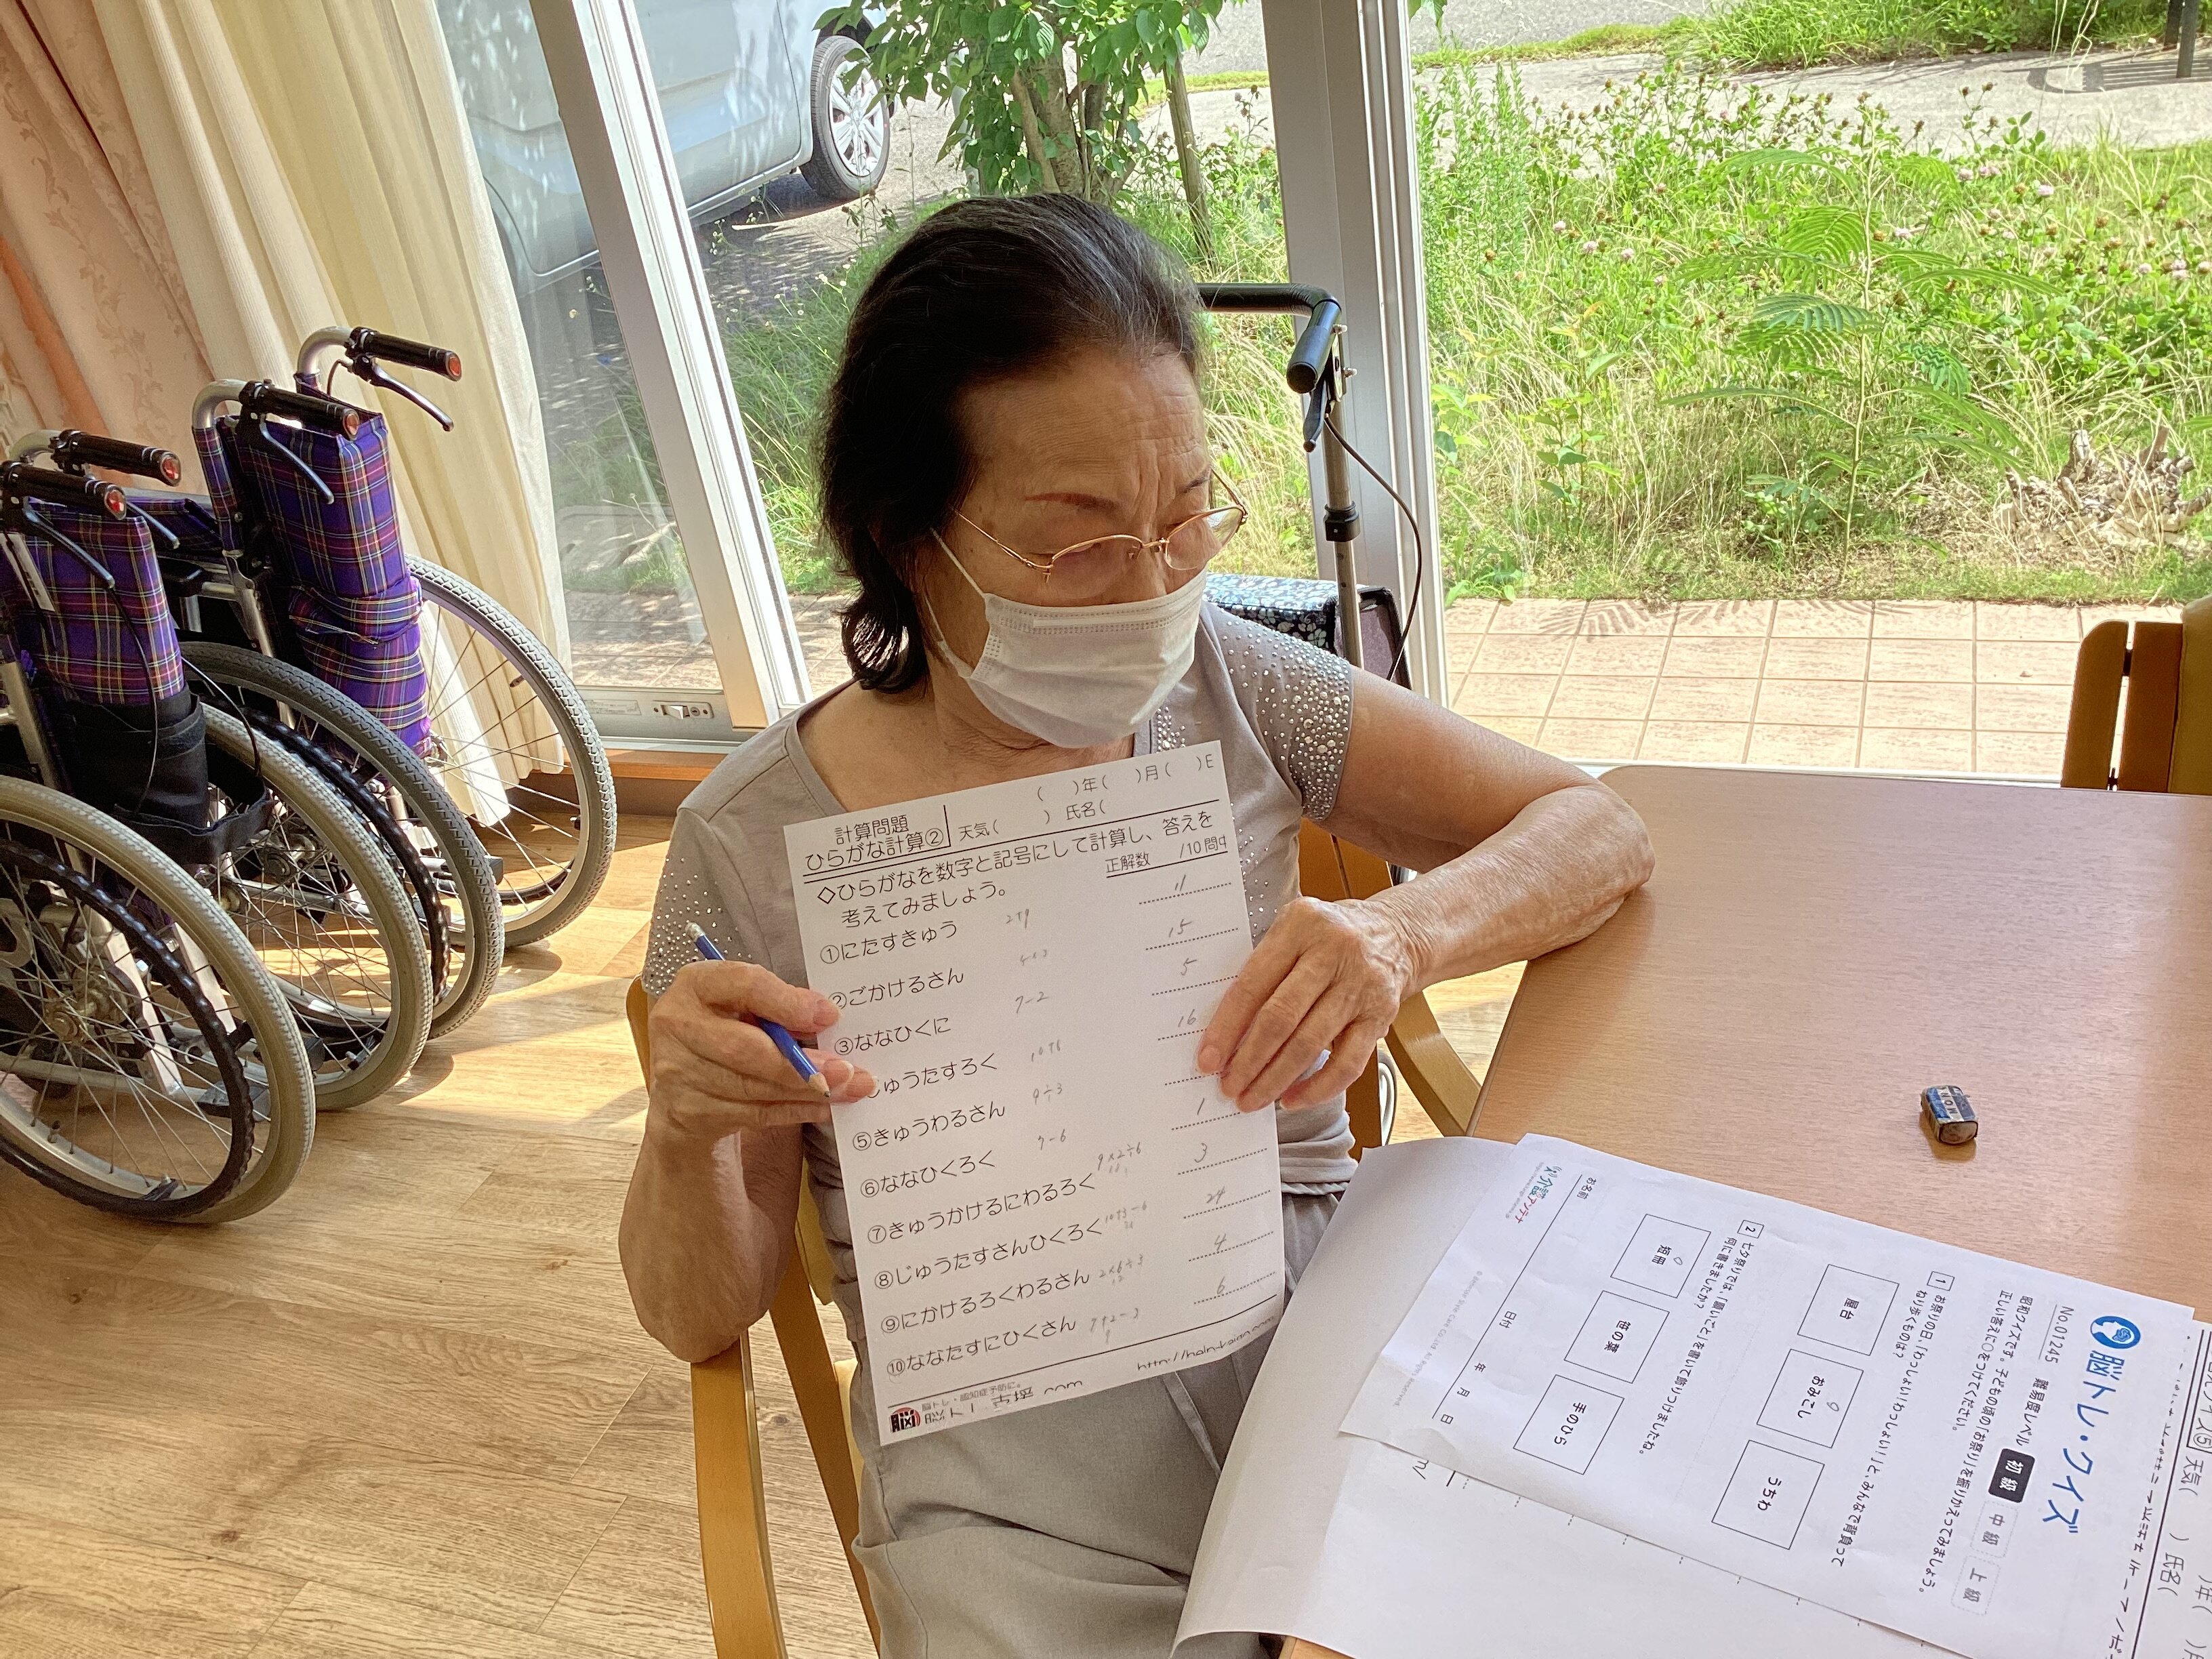 計算問題
ひらがな計算②
( )年( )月( )
天気( ) 氏名(
◇ひらがなを数字と記号にして計算し、答えを
考えてみましょう。
正解数 /10問中
①にたすきゅう 2+9 11
②ごかけるさん 15
③ななひくに 7-2 5
じゅうたすろく 10+6 16
⑤きゅうわるさん 9÷3
⑥ななひくろく 7-6 1
⑦きゅうかけるにわるろく 9×2÷6 3
⑧じゅうたすさんひくろく 24
⑨にかけるろくわるさん 2×6÷3 4
12
⑩ななたすにひくさん 7+2-3 6
9
脳トレ・認知症予防に。
MONO
脳トレ・クイズ
No.01245 難易度レベル 初級 中級 上級
昭和クイズです。子どもの頃の「お祭り」を振りかえってみましょう。
正しい答えに○をつけてください。
1 お祭りの日、「わっしょい!わっしょい!」と、みんなで背負って
ねり歩くものは?
屋台
おみこし
うちわ
2 七夕祭りでは、「願いごと」を書いて飾りつけましたね。
何に書きましたか?
短冊
笹の葉
手のひら
お名前
日付 年 月 日
介護アンテナ
⑤ 天気( ) 氏名(
)年(